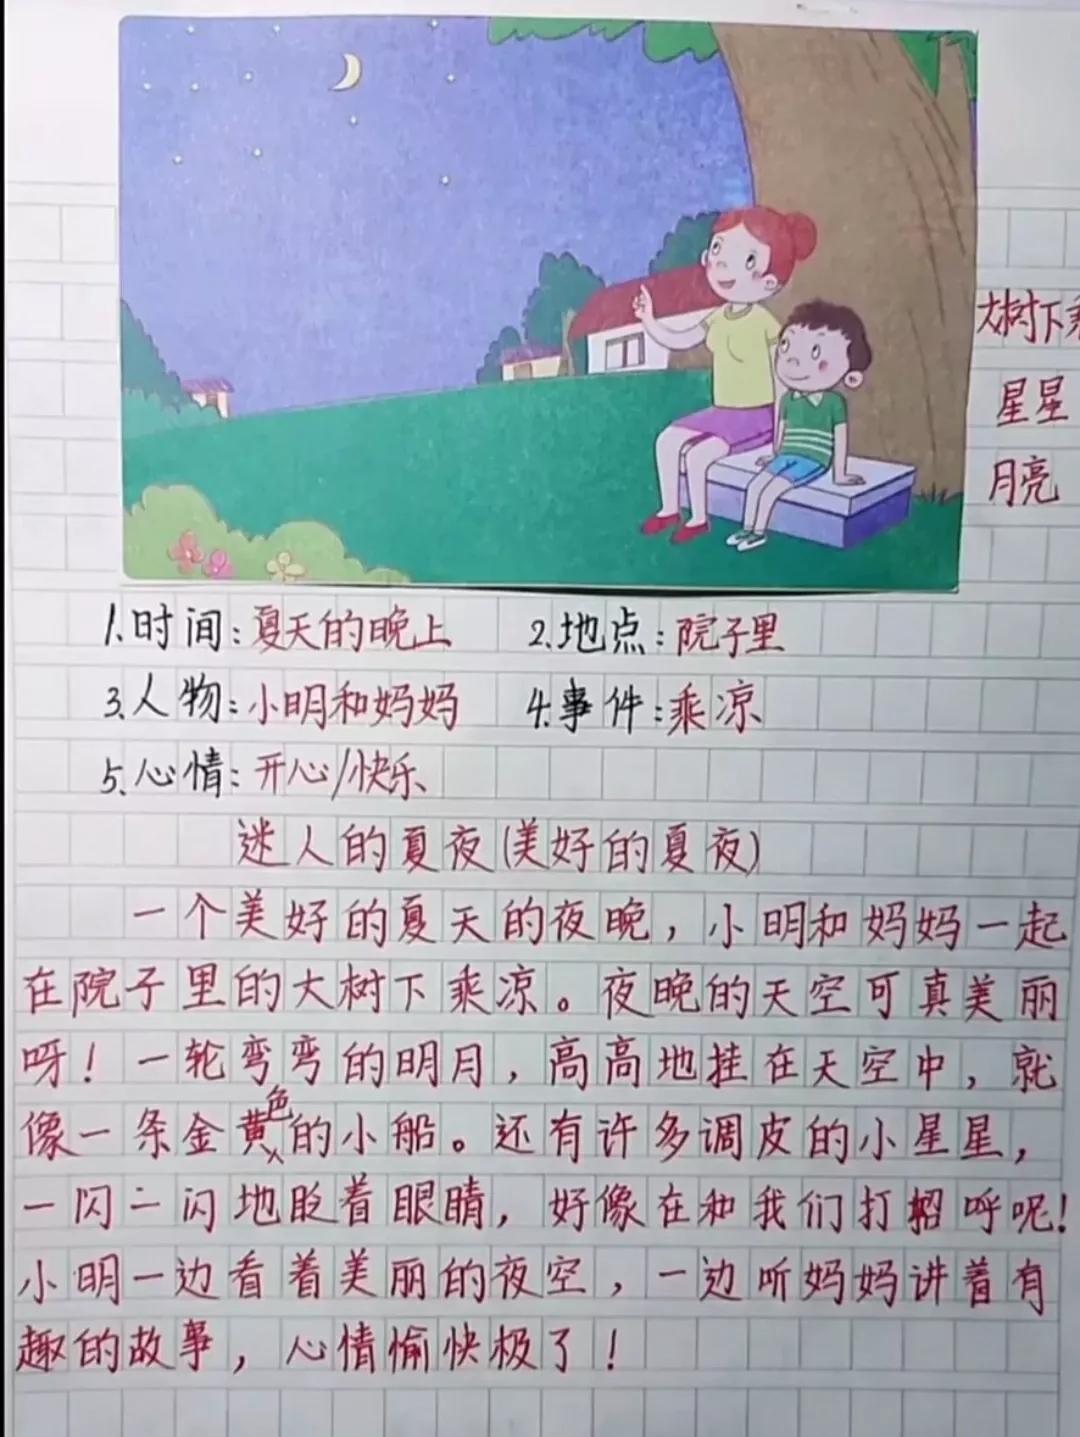 大树下乘
星星
月亮
1.时间:夏天的晚上 2.地点:院子里
3.人物:小明和妈妈 4.事件:乘凉
5.心情:开心/快乐
迷人的夏夜(美好的夏夜)
一个美好的夏天的夜晚，小明和妈妈一起
在院子里的大树下乘凉。夜晚的天空可真美丽
呀！一轮弯弯的明月，高高地挂在天空中，就
像一条金黄色的小船。还有许多调皮的小星星，
一闪一闪地眨着眼睛，好像在和我们打招呼呢！
小明一边看着美丽的夜空，一边听妈妈讲着有
趣的故事，心情愉快极了！